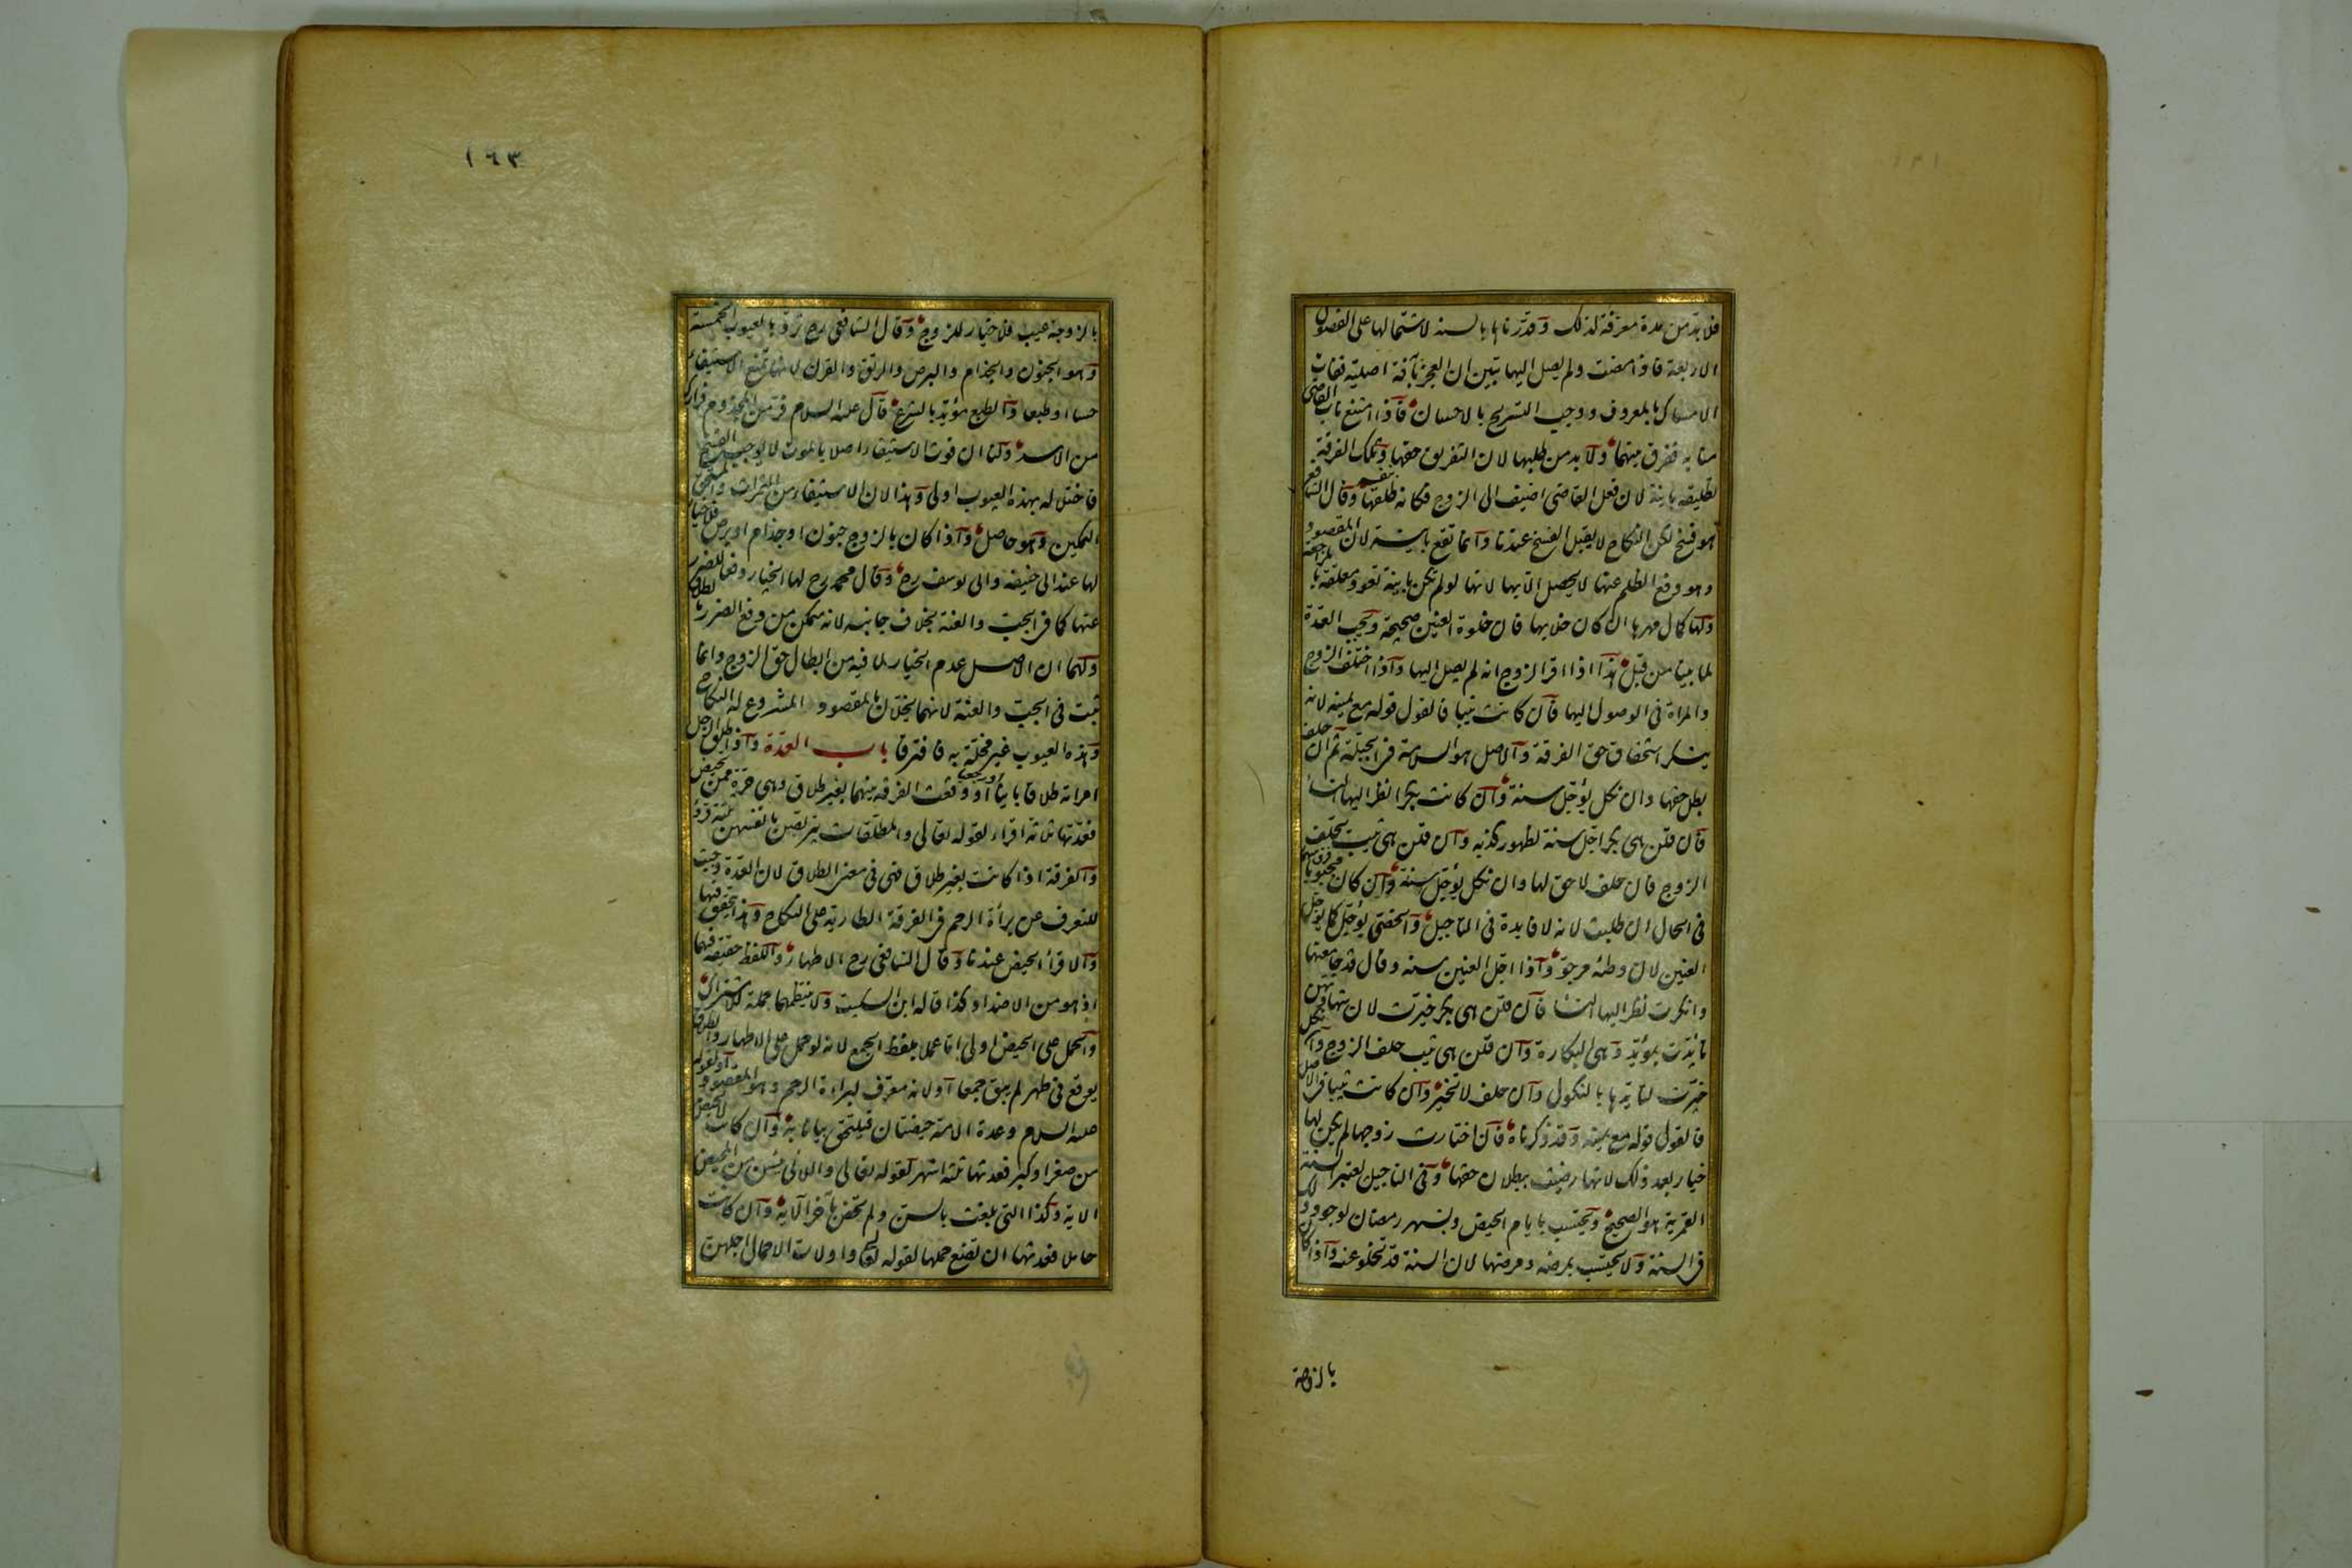 فلا بد من مدة معرفة لذلك وقدرناها بالسنة لاشتمالها على الفصول
الاربعة فاذا مضت ولم يصل اليها تبين ان العجز بآفة اصلية ففات
الامساك بالمعروف ووجب التسريح بالاحسان فاذا امتنع ناب القاضى
منابه ففرق بينهما ولا بد من طلبها لان التفريق حقها وتلك الفرقة
تطليقة باينة لان فعل القاضى اضيف الى الزوج فكانه طلقها بنفسه وقال الشافعى
هو فسخ لكن النكاح لا يقبل الفسخ عندنا وانما تقع باينة لان المقصود
وهو دفع الظلم عنها لا يحصل الا بها لانها لو لم تكن باينة تعود معلقة بالمراجعة
ولها كمال مهرها ان كان خلا بها فان خلوة العنين صحيحة وتجب العدة
لما بينا من قبل هذا اذا اقر الزوج انه لم يصل اليها واذا اختلف الزوج
والمراة فى الوصول اليها فان كانت ثيبا فالقول قوله مع يمينه لانه
ينكر استحقاق حق الفرقة والاصل هو السلامة فى الجبلة ثم ان حلف
بطل حقها وان نكل يؤجل سنة وان كانت بكرا نظر اليها النساء
فان قلن هى بكر اجل سنة لظهور كذبه وان قلن هى ثيب يحلف
الزوج فان حلف لا حق لها وان نكل يؤجل سنة وان كان مجبوبا فرق بينهما
فى الحال ان طلبت لانه لا فايدة فى التاجيل والخصى يؤجل كما يؤجل
العنين لان وطئه مرجو واذا اجل العنين سنة وقال قد جامعتها
وانكرت نظر اليها النساء فان قلن هى بكر خيرت لان شهادتهن
تايدت بمؤيد وهى البكارة وان قلن هى ثيب حلف الزوج فان نكل
خيرت لتايدها بالنكول وان حلف لا تخير وان كانت ثيبا فى الاصل
فالقول قوله مع يمينه وقد ذكرناه فان اختارت زوجها لم يكن لها
خيار بعد ذلك لانها رضيت ببطلان حقها وفى التاجيل تعتبر السنة
القمرية هو الصحيح ويحتسب بايام الحيض وبشهر رمضان لوجود ذلك
فى السنة ولا يحتسب بمرضه ومرضها لان السنة قد تخلو عنه واذا كان
بالزوجة
١٦٣
بالزوجة عيب فلا خيار للزوج وقال الشافعى رح ترد بالعيوب الخمسة
وهو الجنون والجذام والبرص والرتق والقرن لانها تمنع الاستيفاء
حسا او طبعا والطبع مؤيد بالشرع قال عليه السلام فر من المجذوم فرارك
من الاسد ولنا ان فوت الاستيفاء اصلا بالموت لا يوجب الفسخ
فاختلاله بهذه العيوب اولى وهذا لان الاستيفاء من الثمرات والمستحق
التمكين وهو حاصل واذا كان بالزوج جنون او جذام او برص فلا خيار
لها عند ابى حنيفة وابى يوسف رح وقال محمد رح لها الخيار دفعا للضرر
عنها كما فى الجب والعنة بخلاف جانبه لانه متمكن من دفع الضرر بالطلاق
ولهما ان الاصل عدم الخيار لما فيه من ابطال حق الزوج وانما
ثبت فى الجب والعنة لانهما يخلان بالمقصود المشروع له النكاح
وهذه العيوب غير مخلة به فافترقا باب العدة واذا طلق الرجل
امراته طلاقا باينا او رجعيا او وقعت الفرقة بينهما بغير طلاق وهى حرة ممن تحيض
فعدتها ثلاثة اقراء لقوله تعالى والمطلقات يتربصن بانفسهن ثلثة قروء
والفرقة اذا كانت بغير طلاق فهى فى معنى الطلاق لان العدة وجبت
للتعرف عن براءة الرحم فى الفرقة الطارية على النكاح وهذا يتحقق فيها
والاقراء الحيض عندنا وقال الشافعى رح الاطهار واللفظ حقيقة فيهما
اذ هو من الاضداد كذا قاله ابن السكيت ولا ينتظمهما جملة للاشتراك
والحمل على الحيض اولى اما عملا بلفظ الجمع لانه لو حمل على الاطهار والطلاق
يوقع فى طهر لم يبق جمعا او لانه معرف لبراءة الرحم وهو المقصود او لقوله
عليه السلام وعدة الامة حيضتان فيلتحق بيانا به وان كانت لا تحيض
من صغر او كبر فعدتها ثلثة اشهر لقوله تعالى واللائى يئسن من المحيض
الاية وكذا التى بلغت بالسن ولم تحض بآخر الآية وان كانت
حاملا فعدتها ان تضع حملها لقوله تعالى واولات الاحمال اجلهن